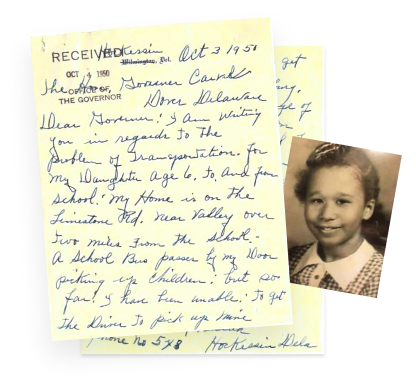 RECEIVED
Hockessin
Wilmington, Del.
Oct 3 1950
OCT 4 1950
OFFICE OF
THE GOVERNOR
The Hon Governor Carvel
Dover Delaware
Dear Governor: I am writing
you in regards to the
problem of Transportation. for
my Daughter age 6. to and from
school. My Home is on the
Limestone Rd. near Valley over
two miles from the school. -
A School Bus passes by my Door
picking up children: but so
far. I have been unable. to get
the Driver to pick up mine
get
of
Phone No 5x8
Hockessin Dela